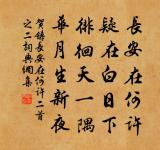 長安在何許
疑在白日下
徘徊天一隅
華月生新夜
賀鑄長安在何許二首
之二詞典網集